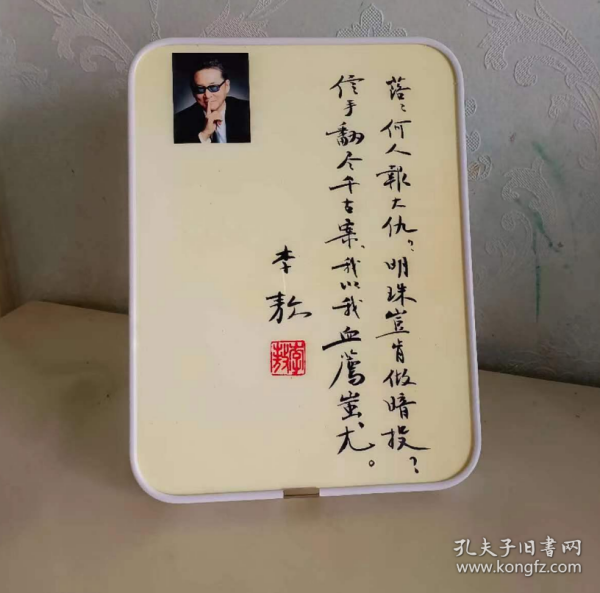 落々何人報大仇？明珠豈肯做暗投？
信手翻尽千古案，我以我血薦蚩尤。
李敖
李敖
孔夫子旧書网
www.kongfz.com